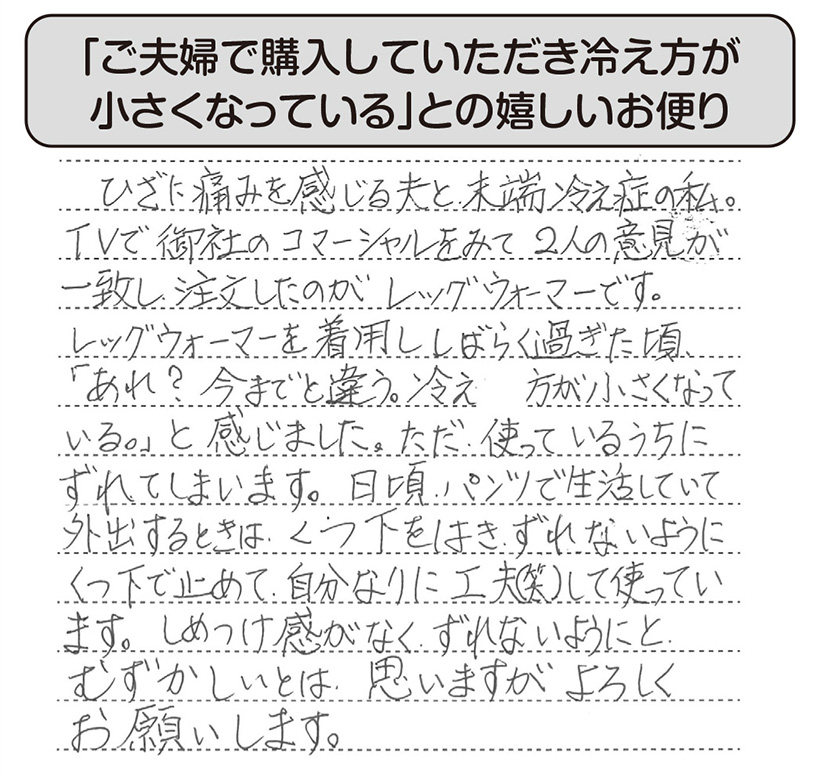 「ご夫婦で購入していただき冷え方が
小さくなっている」との嬉しいお便り
ひざに痛みを感じる夫と、末端冷え症の私。
TVで御社のコマーシャルをみて2人の意見が
一致し、注文したのがレッグウォーマーです。
レッグウォーマーを着用ししばらく過ぎた頃、
「あれ?今までと違う。冷え　方が小さくなって
いる。」と感じました。ただ、使っているうちに
ずれてしまいます。日頃、パンツで生活していて
外出するときは、くつ下をはき、ずれないように
くつ下で止めて、自分なりに工夫(笑)して使ってい
ます。しめつけ感がなく、ずれないようにと、
むずかしいとは、思いますがよろしく
お願いします。